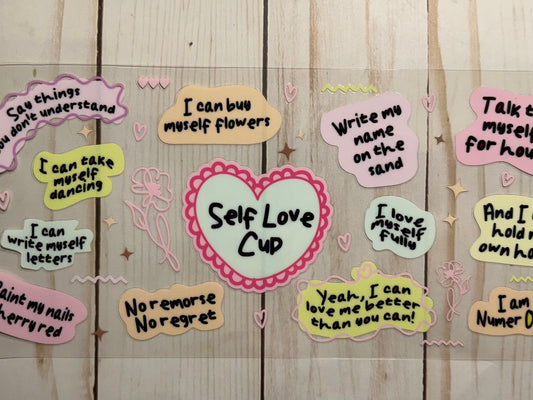 Say things
you don't understand
I can take
myself
dancing
I can
write myself
letters
Paint my nails
cherry red
I can buy
myself flowers
No remorse
No regret
Self Love
Cup
Write my
name
on the
sand
I love
myself
fully
Yeah, I can
love me better
than you can!
Talk t
myself
for hou
And I c
hold m
own ha
I am
Numer